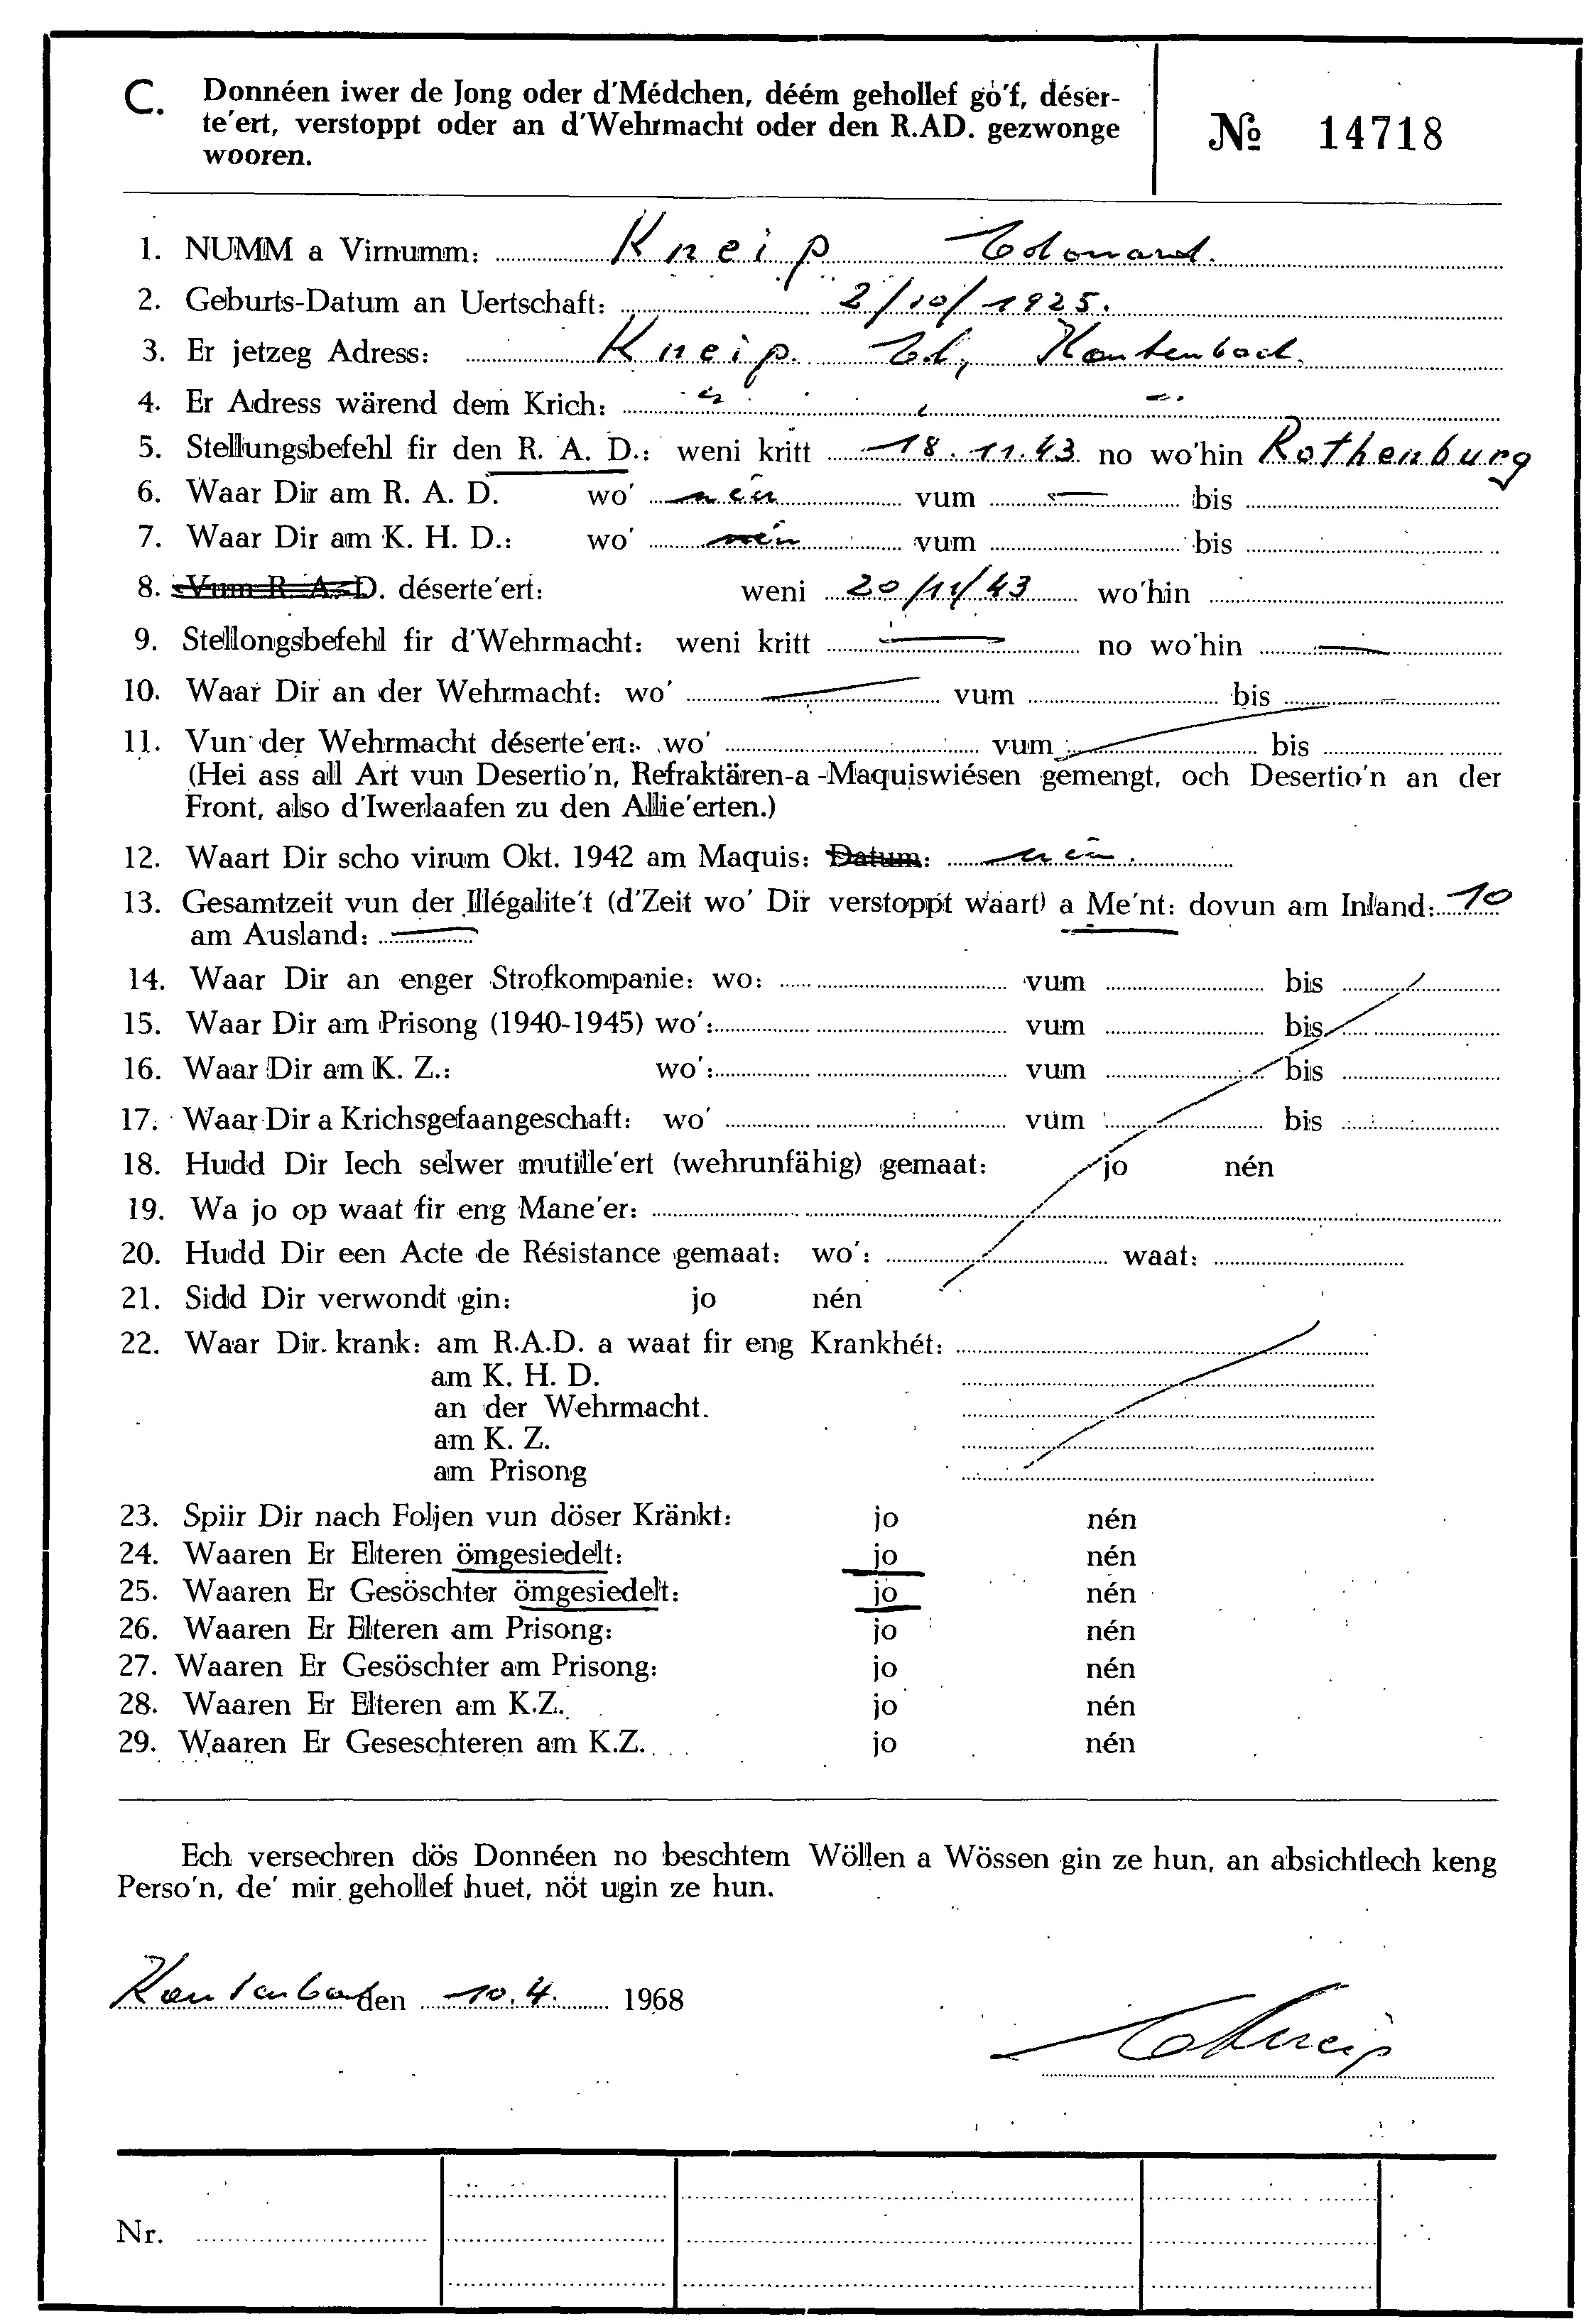 C. Donnéen iwer de Jong oder d'Médchen, déém gehollef go'f, déser-
te'ert, verstoppt oder an d'Wehrmacht oder den R.AD. gezwonge
wooren.
№ 14718
1. NUMM a Virnumm: Kneip Edouard.
2. Geburts-Datum an Uertschaft: 2/10/1925.
3. Er jetzeg Adress: Kneip. Ed, Kautenbach.
4. Er Adress wärend dem Krich: " " "
5. Stellungsbefehl fir den R. A. D.: weni kritt 18.11.43 no wo'hin Rothenburg
6. Waar Dir am R. A. D. wo' nén vum — bis
7. Waar Dir am K. H. D.: wo' nén vum bis
8. Vum R. A. D. déserte'ert: weni 20/11/43 wo'hin
9. Stellongsbefehl fir d'Wehrmacht: weni kritt — no wo'hin —
10. Waar Dir an der Wehrmacht: wo' vum bis
11. Vun der Wehrmacht déserte'ert: wo' vum bis
(Hei ass all Art vun Desertio'n, Refraktären-a -Maquiswiésen gemengt, och Desertio'n an der
Front, also d'Iwerlaafen zu den Allie'erten.)
12. Waart Dir scho virum Okt. 1942 am Maquis: Datum: nén.
13. Gesamtzeit vun der Illégalite't (d'Zeit wo' Dir verstoppt waart) a Me'nt: dovun am Inland: 10
am Ausland: —
14. Waar Dir an enger Strofkompanie: wo: vum bis
15. Waar Dir am Prisong (1940-1945) wo': vum bis
16. Waar Dir am K. Z.: wo': vum bis
17. Waar Dir a Krichsgefaangeschaft: wo' vum bis
18. Hudd Dir Iech selwer mutille'ert (wehrunfähig) gemaat: jo nén
19. Wa jo op waat fir eng Mane'er:
20. Hudd Dir een Acte de Résistance gemaat: wo': waat:
21. Sidd Dir verwondt gin: jo nén
22. Waar Dir. krank: am R.A.D. a waat fir eng Krankhét:
am K. H. D.
an der Wehrmacht.
am K. Z.
am Prisong
23. Spiir Dir nach Foljen vun döser Kränkt: jo nén
24. Waaren Er Elteren ömgesiedelt: jo nén
25. Waaren Er Gesöschter ömgesiedelt: jo nén
26. Waaren Er Elteren am Prisong: jo nén
27. Waaren Er Gesöschter am Prisong: jo nén
28. Waaren Er Elteren am K.Z. jo nén
29. Waaren Er Geseschteren am K.Z. jo nén
Ech versechren dös Donnéen no beschtem Wöllen a Wössen gin ze hun, an absichtlech keng
Perso'n, de' mir gehollef huet, nöt ugin ze hun.
Kautenbach den 10.4. 1968
EdKneip
Nr.